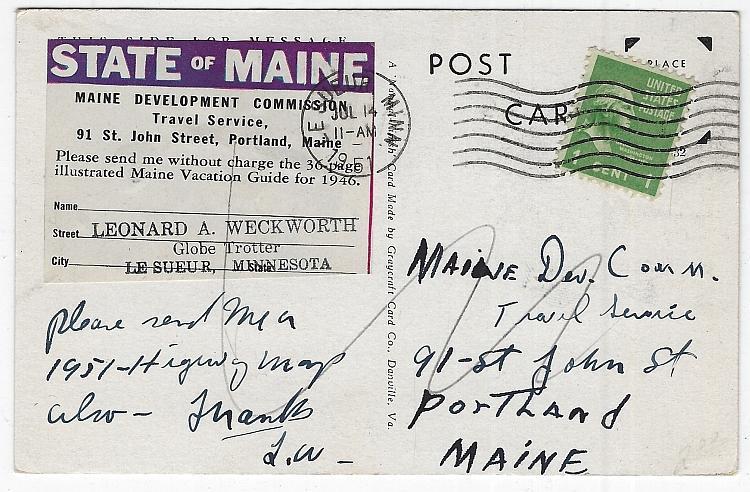 THIS SIDE FOR MESSAGE
STATE OF MAINE
MAINE DEVELOPMENT COMMISSION
Travel Service,
91 St. John Street, Portland, Maine
Please send me without charge the 36-page
illustrated Maine Vacation Guide for 1946.
Name
Street LEONARD A. WECKWORTH
Globe Trotter
City LE SUEUR, MINNESOTA
State
Please send Me a
1951-Higway Map
also - Thanks
L.W -
LE SUEUR MINN.
JUL 14
11-AM
1951
Card Made by Graycraft Card Co., Danville, Va.
POST
CAR
PLACE
UNITED
STATES
POSTAGE
WASHINGTON
CENT 1
MAINE Dev. Comm.
Travel Service
91-St John St
PORTLAND
MAINE